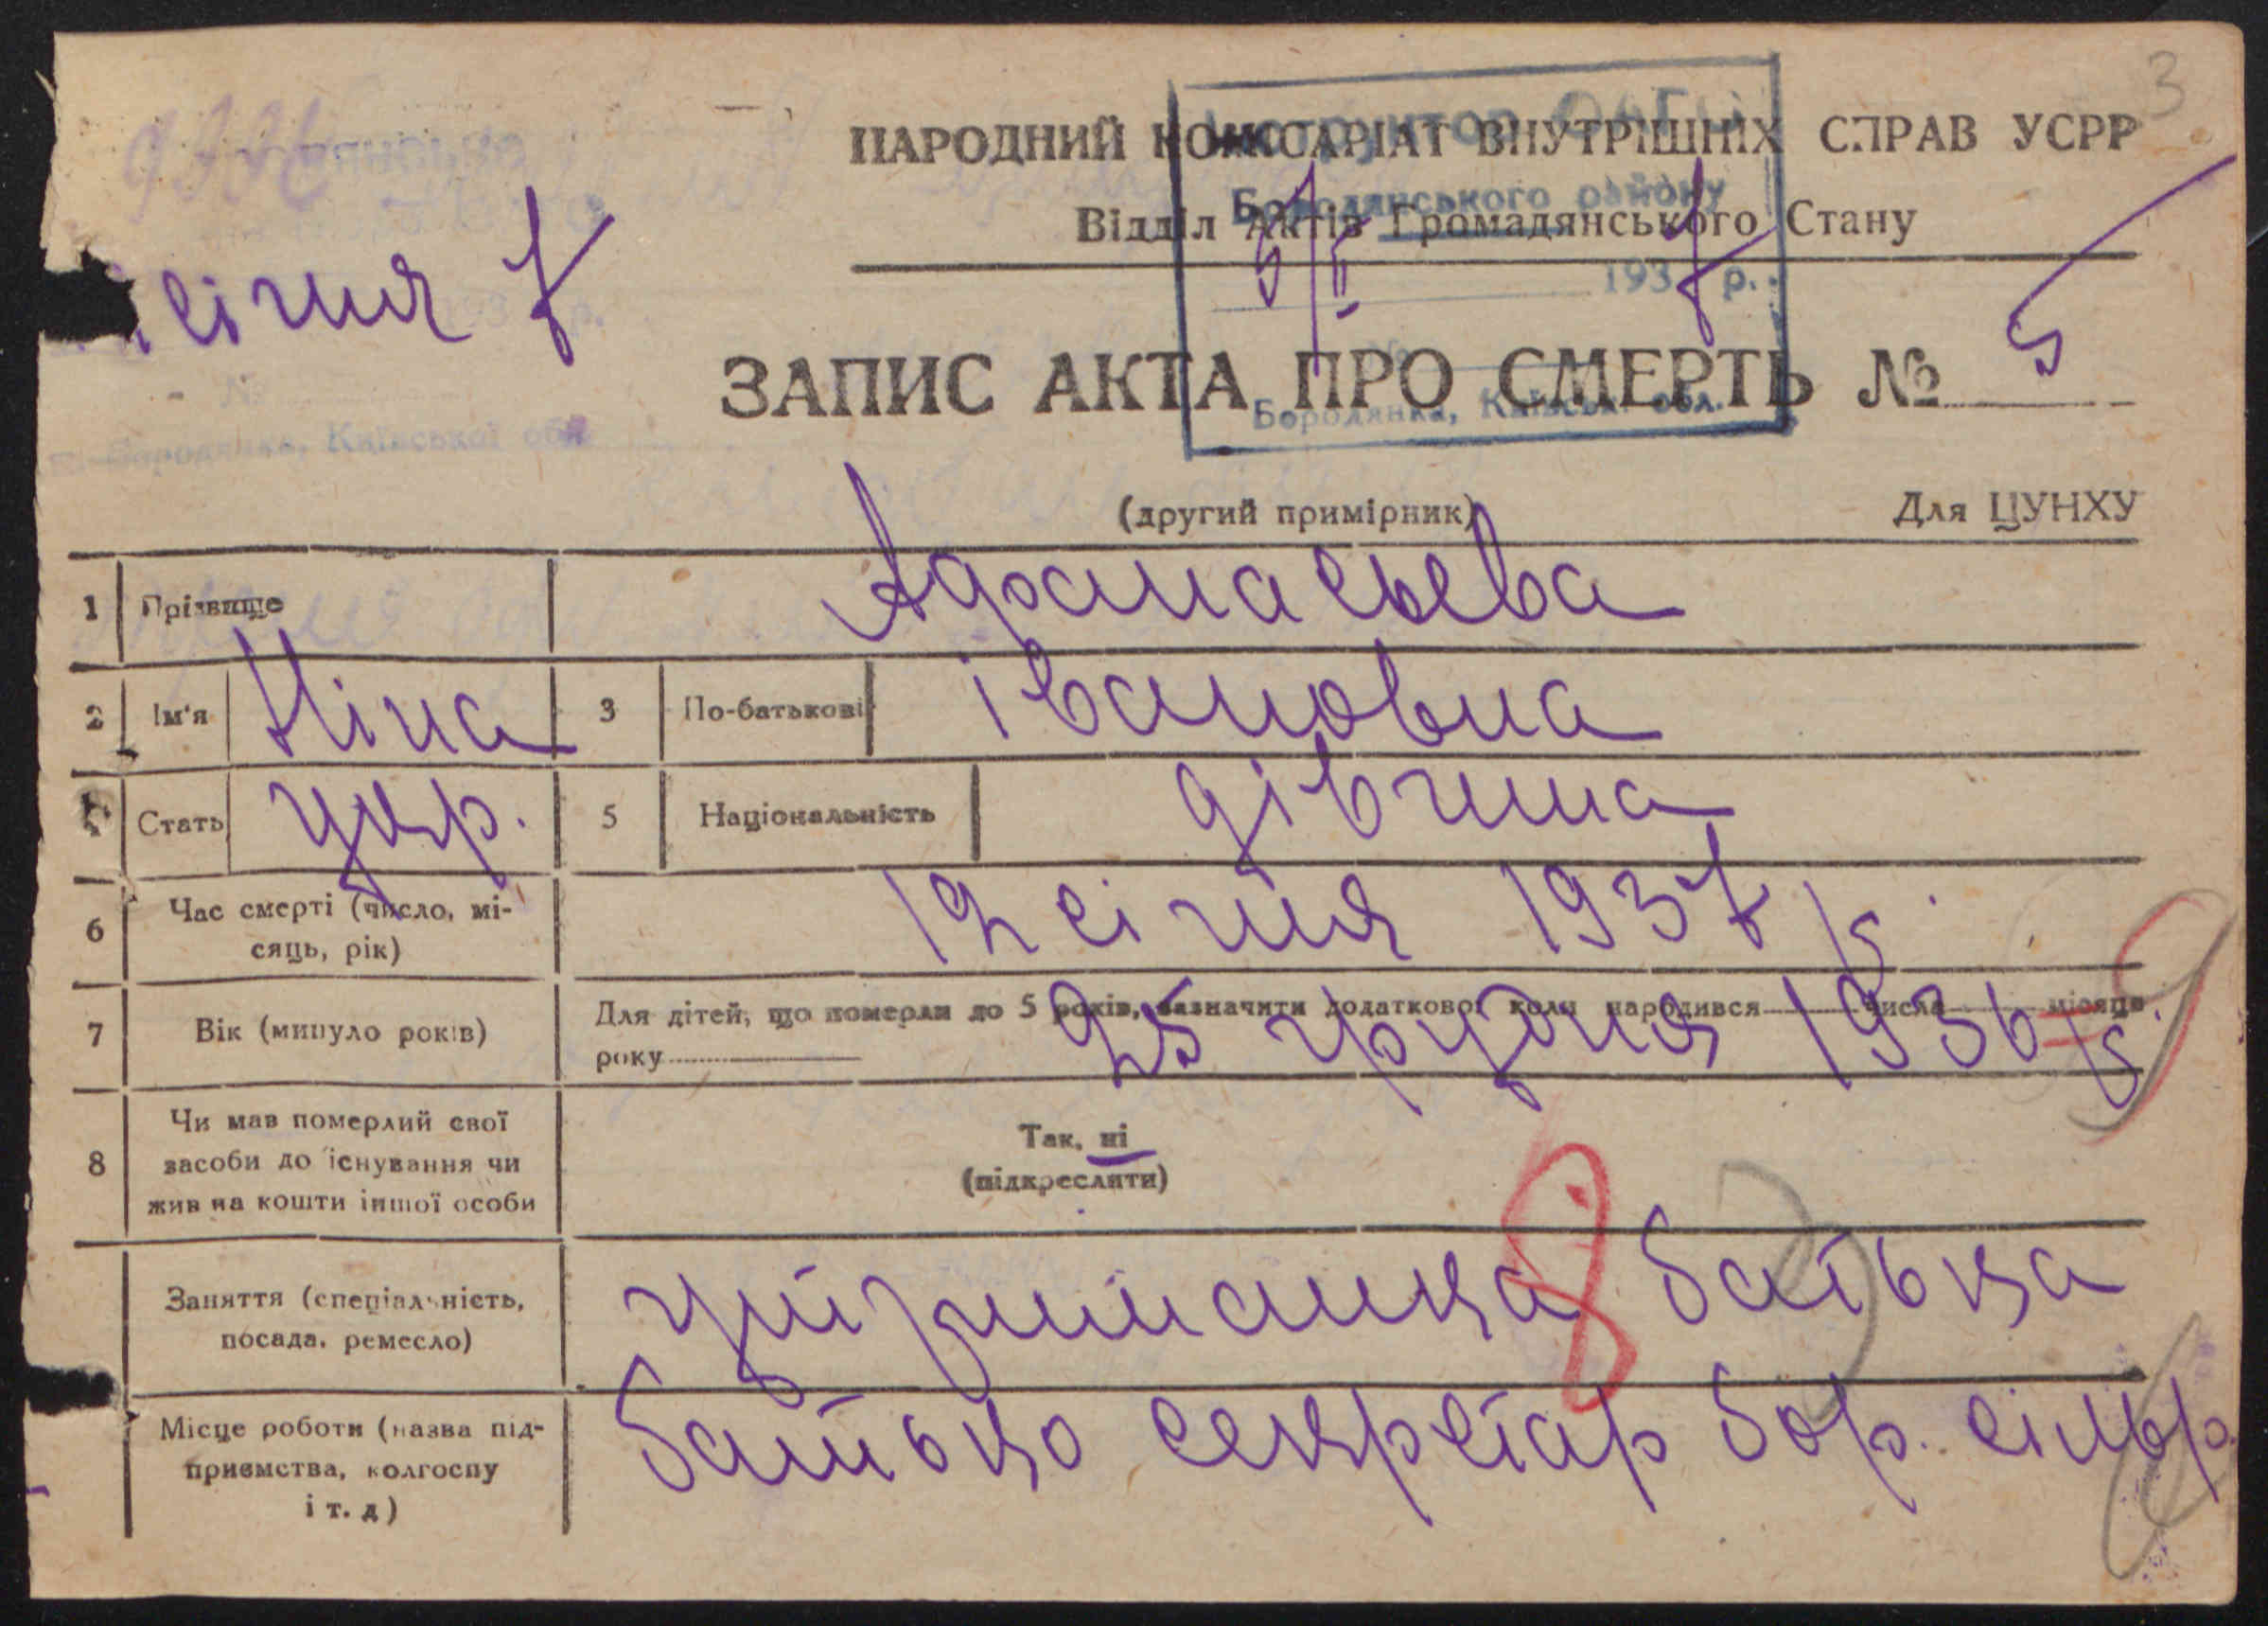 3
НАРОДНИЙ КОМІСАРІАТ ВНУТРІШНІХ СПРАВ УСРР
Відділ Актів Громадянського Стану
Бородянського району
6/II 1937 р.
січня 7
ЗАПИС АКТА ПРО СМЕРТЬ № 5
Бородянка, Київськ. обл.
Бородянка, Київської обл.
(другий примірник)
Для ЦУНХУ
1 Прізвище Афанасьєва
2 Ім'я Ніна 3 По-батькові івановна
4 Стать укр. 5 Національність дівчина
6 Час смерті (число, мі-
сяць, рік) 12 січня 1937 р.
7 Вік (минуло років) Для дітей, що померли до 5 років, зазначити додатково: коли народився числа місяця
року 25 грудня 1936 р.
8 Чи мав померлий свої
засоби до існування чи
жив на кошти іншої особи
Так, ні
(підкреслити)
Заняття (спеціальність,
посада, ремесло) утриманка батька
Місце роботи (назва під-
приємства, колгоспу
і т. д) батько секретар бор. сільр.